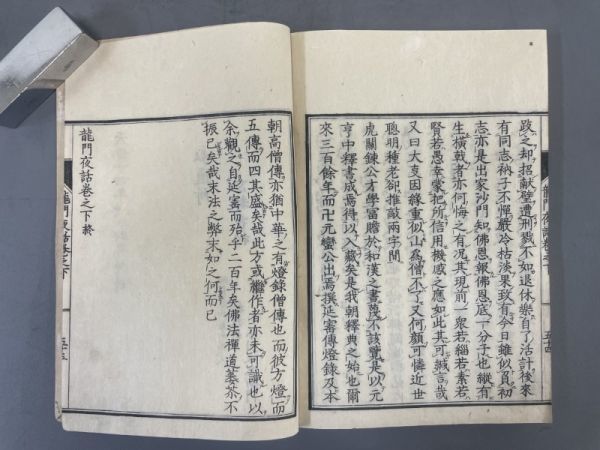 政之却招獻璧遭刑戮不如退休樂自了活計後來
有同志衲子不憚嚴冷枯淡果致有今日雖似負初
志亦是出家沙門知佛恩報佛恩底一分子也縱有
生橫戟者亦何悔之有況其現前一衆若緇若素若
賢若愚幸蒙把所信用機感之應如此其可誠言哉
又曰大支因緣重似山爲僧不了又何顏可憐近世
聰明種老卻推敲兩字間
虎關鍊公才學冨贍於和漢之書莫不該覽是以元
亨中釋書成焉得以入藏矣是我朝釋典之始也爾
來三百餘年而卍元蠻公出焉撰延寶傳燈錄及本
龍門夜話卷下
五十四
朝高僧傳亦猶中華之有燈錄僧傳也而彼方燈而
五傳而四其盛矣哉此方或繼作者亦未可識也以
余觀之自延寶而殆乎二百年矣佛法禪道萎苶不
振已矣哉末法之弊末如之何而已
龍門夜話卷之下終
龍門夜話卷之下
五十五